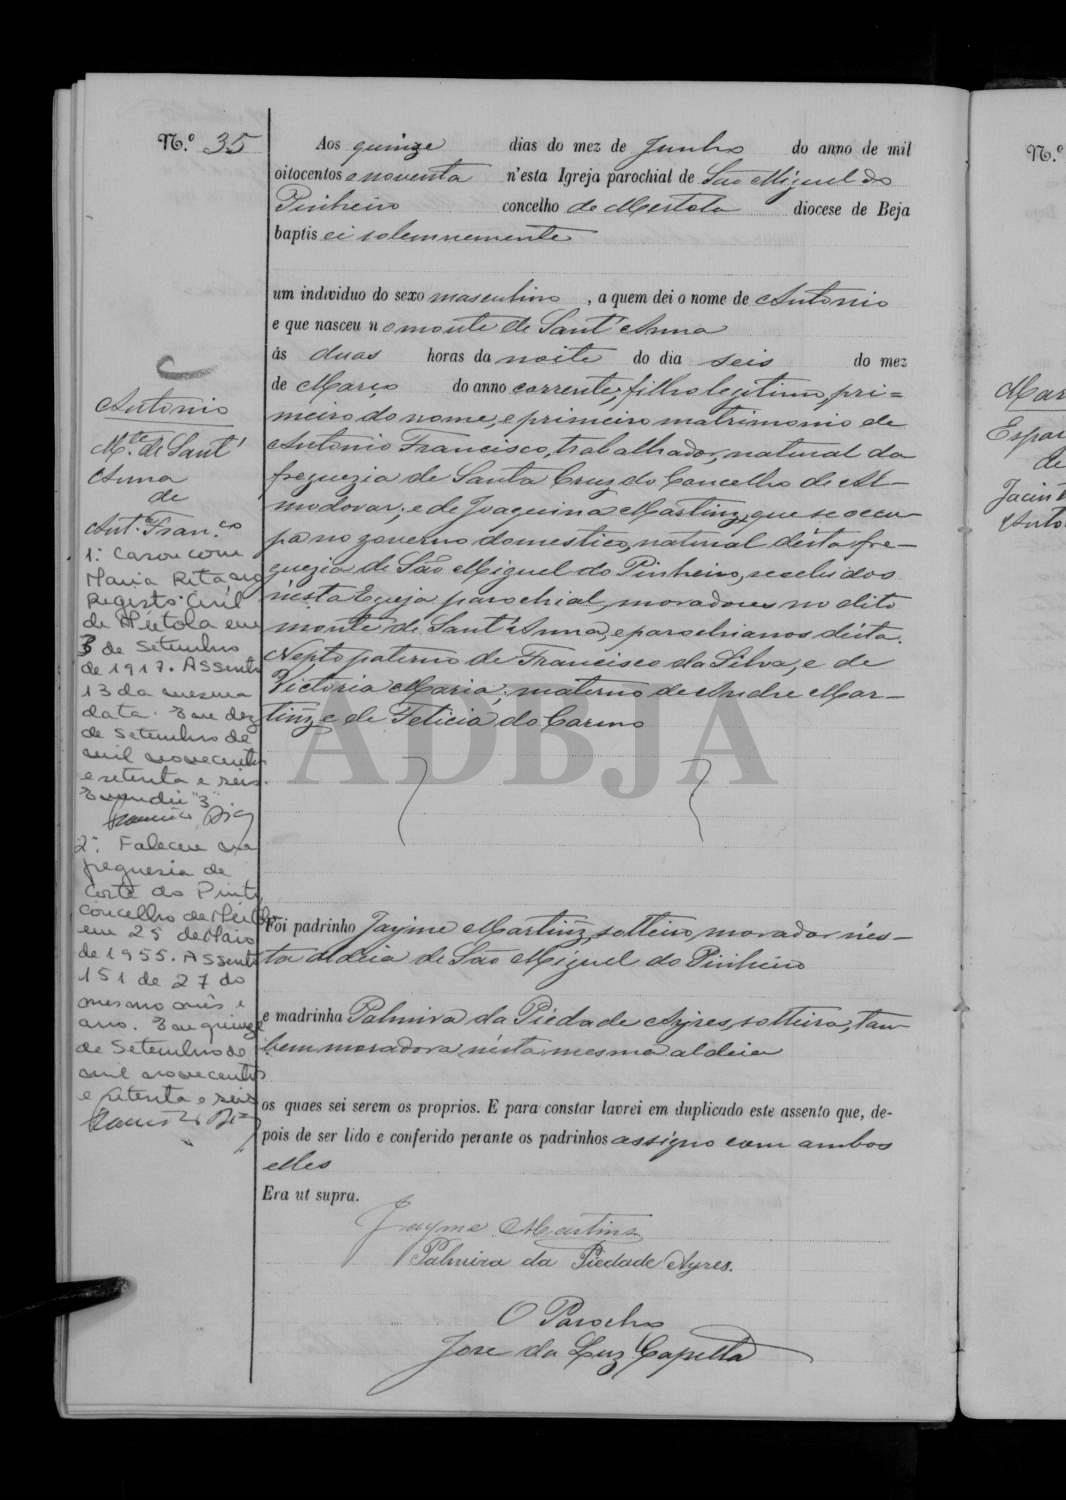 N.º 35
Aos quinze dias do mez de Junho do anno de mil
oitocentos e noventa n'esta Igreja parochial de São Miguel do
Pinheiro concelho de Mertola diocese de Beja
baptisei solemnemente
um individuo do sexo masculino, a quem dei o nome de Antonio
e que nasceu no monte de Sant'Anna
ás duas horas da noite do dia seis do mez
de Março do anno corrente, filho legitimo, pri=
meiro do nome, e primeiro matrimonio de
Antonio Francisco, trabalhador, natural da
freguezia de Santa Cruz do Concelho de Al-
modovar; e de Joaquina Martinz, que se occu
pa no governo domestico, natural d'esta fre-
guezia de São Miguel do Pinheiro, recebidos
n'esta Egreja parochial, moradores no dito
monte de Sant'Anna, e parochianos d'esta.
Nepto paterno de Francisco da Silva, e de
Victoria Maria; materno de Andre Mar-
tinz e de Leticia do Carmo
Foi padrinho Jayme Martinz, solteiro, morador n'es-
ta aldeia de São Miguel do Pinheiro
e madrinha Palmira da Piedade Ayres, solteira, tam
bem moradora n'esta mesma aldeia
os quaes sei serem os proprios. E para constar lavrei em duplicado este assento que, de-
pois de ser lido e conferido perante os padrinhos assigno com ambos
elles
Era ut supra.
Jayme Martins
Palmira da Piedade Ayres.
O Parocho
Jose da Luz Capella
Antonio
M.te de Sant'
Anna
de
Ant.º Fran.co
1.º Casou com
Maria Rita, no
Registo Civil
de Mértola em
3 de Setembro
de 1917. Assento
13 da mesma
data. Em dez
de Setembro de
mil novecentos
e setenta e seis.
Emendei "3"
2.º Faleceu na
freguesia de
Corte do Pinto
concelho de Mértola
em 25 de Maio
de 1955. Assento
151 de 27 do
mesmo mês e
ano. Em quinze
de Setembro de
mil novecentos
e setenta e seis
ADBJA
N.º
Mar
Espar
de
Jacint
Anto